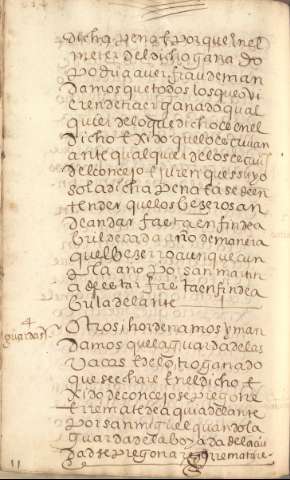 dicha pena E porque En el
meter del dicho ganado
podria aver fraude man
damos que todos los que qui
eren echar ganado qual
quier de lo que dicho es en el
dicho Exido que lo Escriuan
ante qualquier de los Escriu
del concejo E juren que es suyo
so la dicha pena E a se de en
tender que los bezerros an
de andar fasta en fin de a
bril de cada año de manera
que el bezerro aunque cun
pla año por san martin
a de estar fasta en fin de a
bril adelante
4
guardas
Otrosi hordenamos y man
damos que la guarda de las
vacas E de lo otro ganado
que se echare En el dicho E
xido de concejo se pregone
E rremate de aqui adelante
por san miguel quando la
guarda de la boyada de la ciu
dad se pregonare E rrematare